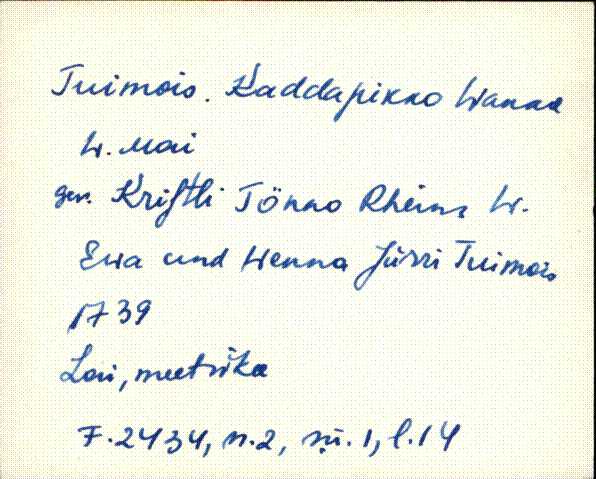 Tuimois. Kaddapikno Wanna
W. Mai
gev. Kriftli Tönno Rheins W.
Ewa und Wenna Jürri Tuimois
1739
Lai, meetrika
F. 2434, n. 2, sü. 1, l. 14